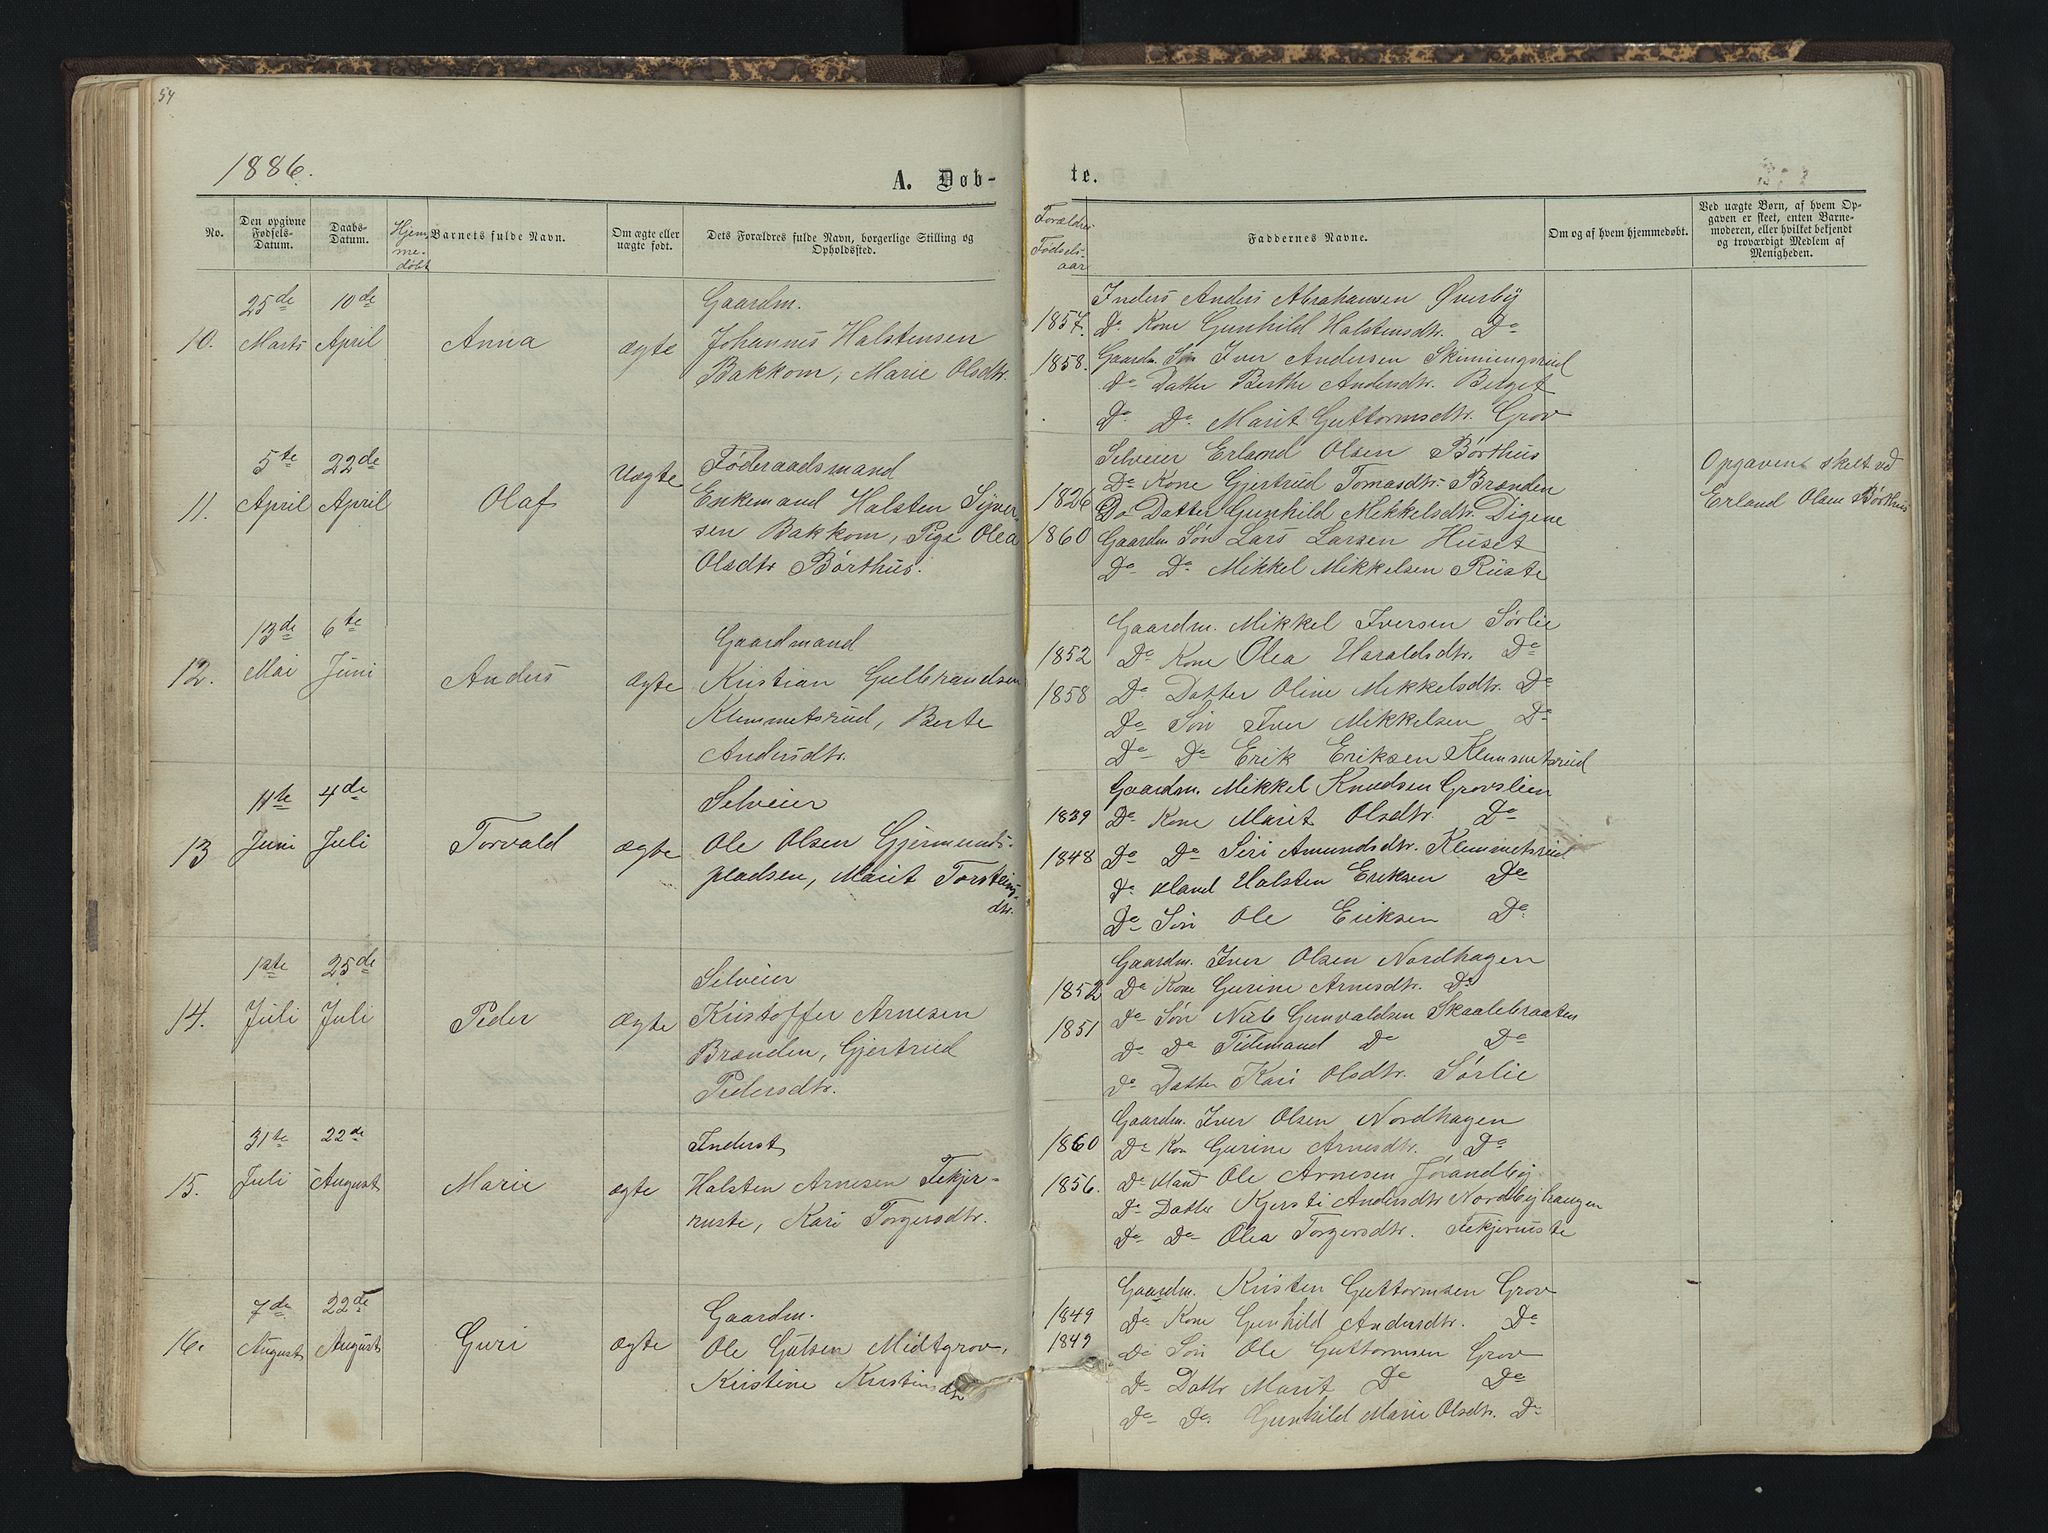 54
1886.
A. Døb-
te.
No.
Den opgivne Fødsels-Datum.
Daabs-Datum.
Hjem-me-døbt
Barnets fulde Navn.
Om ægte eller uægte født.
Dets Forældres fulde Navn, borgerlige Stilling og Opholdssted.
Forældres Fødselsaar
Faddernes Navne.
Om og af hvem hjemmedøbt.
Ved uægte Børn, af hvem Op-
gaven er skeet, enten Barne-
moderen, eller hvilket bekjendt
og troværdigt Medlem af
Menigheden.
10.
25de Marts
10de April
Anna
ægte
Gaardm.
Johannes Halstensen
Bakkom, Marie Olsdtr.
1857.
1858.
Inders Anders Abrahamsen Øverby
Do Kone Gunhild Halstensdtr. Do
Gaardm. Søn Iver Andersen Skinningsrud
Do Datter Berthe Andersdtr. Berget
Do Do Marit Guttormsdtr. Grov
11.
5te April
22de April
Olaf
Uægte
Føderaadsmand
Enkemand Halsten Syver-
sen Bakkom, Pige Olea
Olsdtr Børthus.
1826
1860
Selveier Erland Olsen Børthus
Do Kone Gjertrud Tomasdtr. Brænden
Do Datter Gunhild Mikkelsdtr. Digene
Gaardm Søn Lars Larsen Huset
Do Do Mikkel Mikkelsen Ruste
Opgaven skelt ved
Erland Olsen Børthus
12.
13de Mai
6te Juni
Anders
ægte
Gaardmand
Kristian Gulbrandsen
Klemmetsrud, Berte
Andersdtr.
1852
1858
Gaardm. Mikkel Iversen Sørlie
Do Kone Olea Haraldsdtr. Do
Do Datter Oline Mikkelsdtr. Do
Do Søn Iver Mikkelsen Do
Do Do Erik Eriksen Klemmetsrud
13
11te Juni
4de Juli
Torvald
ægte
Selveier
Ole Olsen Gjermunds-
pladsen, Marit Torsteins-
dtr.
1839
1848
Gaardm. Mikkel Knudsen Grovslien
Do Kone Marit Olsdtr. Do
Do Do Siri Amundsdtr. Klemmetsrud
Do Mand Halsten Eriksen Do
Do Søn Ole Eriksen Do
14.
1ste Juli
25de Juli
Peder
ægte
Selveier
Kristoffer Arnesen
Brænden, Gjertrud
Pedersdtr.
1852
1851
Gaardm. Iver Olsen Nordhagen
Do Kone Gurine Arnesdtr. Do
Do Søn Nils Gunvaldsen Skaalebraaten
Do Do Tidemand Do Do
Do Datter Kari Olsdtr. Sørlie
15.
31te Juli
22de August
Marie
ægte
Inderst
Halsten Arnesen Tekjer-
ruste, Kari Torgersdtr.
1860
1856.
Gaardm. Iver Olsen Nordhagen
Do Kon Gurine Arnesdtr. Do
Do Mand Ole Arnesen Jørandby
Do Datter Kjersti Andersdtr Nordbyhaugen
Do Do Olea Torgersdtr. Tekjerruste
16.
7de August
22de August
Guri
ægte
Gaardm.
Ole Gulsen Midtgrov,
Kristine Kristensdtr
1849
1849
Gaardm. Kristen Guttormsen Grov
Do Kone Gunhild Andersdtr. Do
Do Søn Ole Guttormsen Grov
Do Dattr Marit Do Do
Do Do. Gunhild Marie Olsdtr. Do